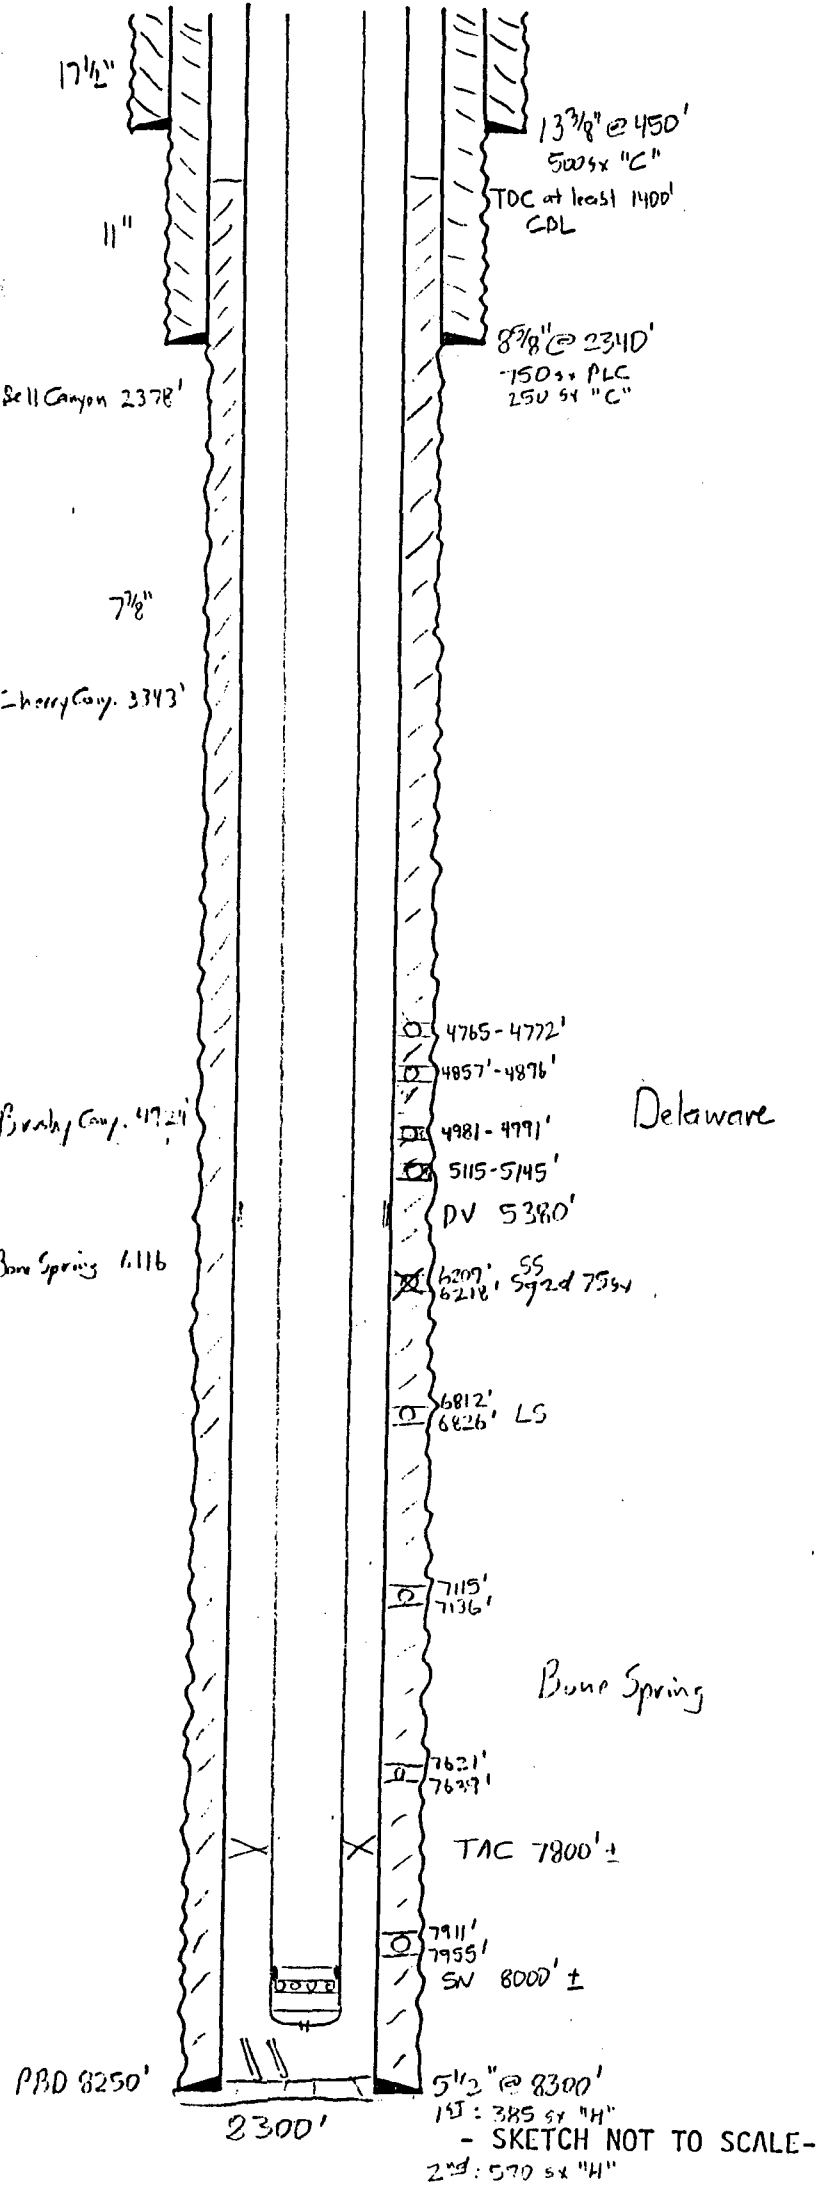 17 1/2"
13 3/8" @ 450'
500 sx "C"
TOC at least 1400'
CBL
11"
8 5/8" @ 2340'
750 sx PLC
250 sx "C"
Bell Canyon 2378'
7 7/8"
Cherry Cany. 3343'
4765-4772'
4857'-4876'
Delaware
Brushy Cany. 4724'
4981-4991'
5115-5145'
DV 5380'
Bone Spring 6116
6209' SS
6218' Sqzd 75sx
6812'
6826' LS
7115'
7136'
Bone Spring
7621'
7639'
TAC 7800' ±
7911'
7955'
SN 8000' ±
PBD 8250'
5 1/2" @ 8300'
8300'
1st: 385 sx "H"
- SKETCH NOT TO SCALE-
2nd: 570 sx "H"